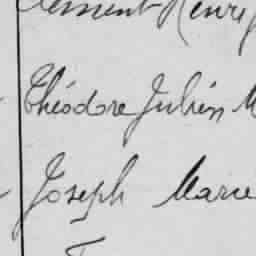 Clément Henri
Théodore Julien M
Joseph Marie